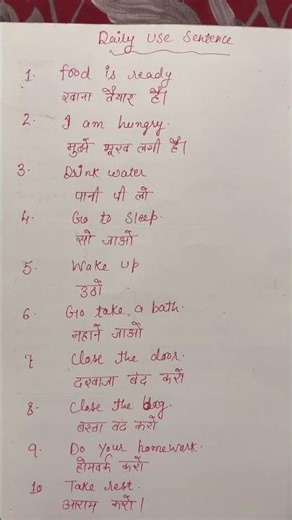 Daily Use Sentence
1. food is ready
खाना तैयार है।
2. I am hungry.
मुझे भूख लगी है।
3. Drink water
पानी पी लो
4. Go to sleep.
सो जाओ
5. Wake up
उठो
6. Go take a bath.
नहाने जाओ
7 Close the door.
दरवाजा बंद करो
8. Close the bag.
बस्ता बंद करो
9. Do Your homework.
होमवर्क करो
10. Take rest.
आराम करो।